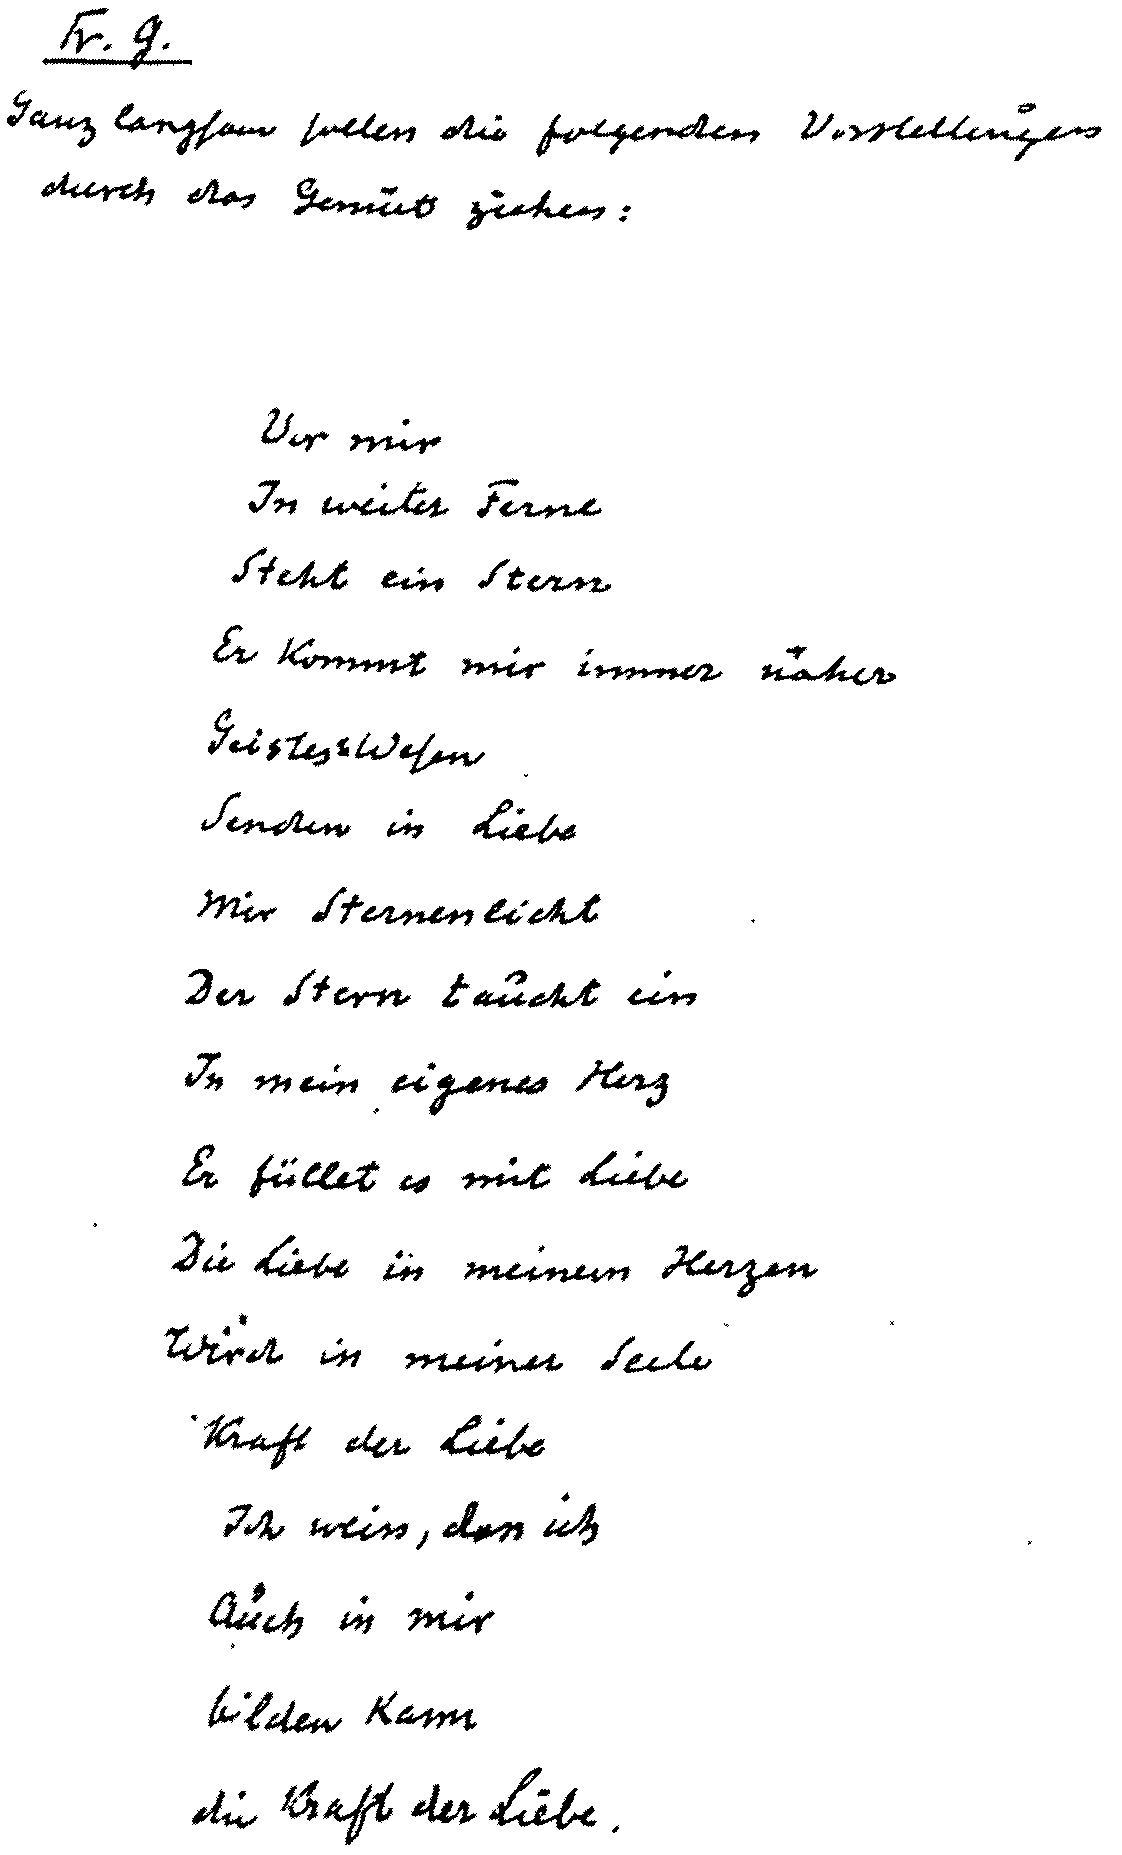 Fr. G.
Ganz langsam sollen die folgenden Vorstellungen
durch das Gemüt ziehen:
Vor mir
In weiter Ferne
Steht ein Stern
Er kommt mir immer näher
Geistes=Wesen
Senden in Liebe
Mir Sternenlicht
Der Stern taucht ein
In mein eigenes Herz
Er füllet es mit Liebe
Die Liebe in meinem Herzen
Wird in meiner Seele
Kraft der Liebe
Ich weiss, dass ich
Auch in mir
bilden kann
die Kraft der Liebe.